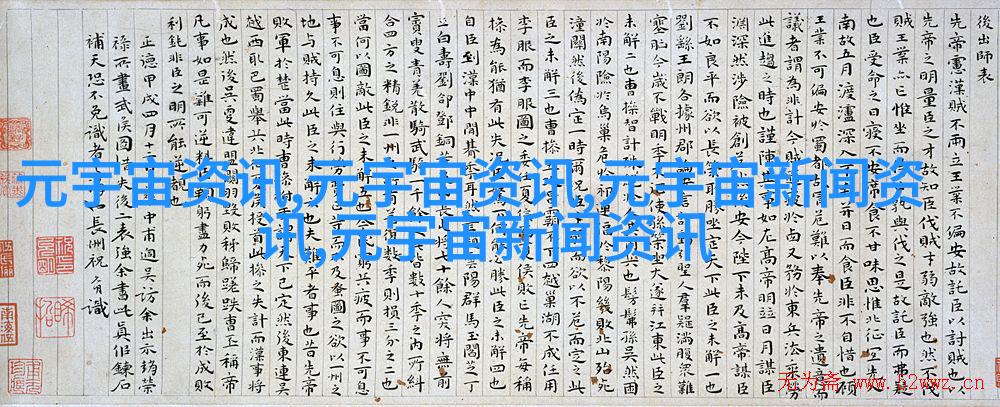 後出師表
先帝慮漢賊不兩立王業不偏安故託臣以討賊也以
先帝之明量臣之才故知臣伐賊才弱敵強也然不伐
賊王業亦亡惟坐而 孰與伐之是故託臣而弗疑
也臣受命之日寢不安席食不甘味思惟北征宜先入
南故五月渡瀘深入 并日而食臣非不自惜也顧
王業不可偏安於蜀都故冒危難以奉先帝之遺意而
議者謂為非計今賊 於西又務於東兵法乘勞
此進趨之時也謹陳其事如左高帝明並日月謀臣
淵深然涉險被創 安今陛下未及高帝謀臣
不如良平而欲以長策取勝坐定天下此臣之未解一也
劉繇王朗各據州郡 聖人群疑滿腹眾難
塞胸今歲不戰明年 使孫策坐大遂并江東此臣之
未解二也曹操智計殊 也髣髴孫吳然困
於南陽險於烏巢危於祁連偪於黎陽幾敗北山殆死
潼關然後偽定一時爾況臣 而欲以不危而定之此
臣之未解三也曹操 霸不下四越巢湖不成任用
李服而李服圖之委任夏侯 敗亡先帝每稱
操為能猶有此失況臣駑下何能必勝此臣之未解四也
自臣到漢中中間朞年耳然喪 雲陽群馬玉閻芝丁
立白壽劉郃鄧銅等 長屯將七十餘人突將無前
賨叟青羌散騎武騎一千餘人 皆數十年之內所糾
合四方之精銳非一州 復數年則損三分之二也
當何以圖敵此臣之未解五也今民窮兵疲而事不可息
事不可息則住與行勞費 而不及蚤圖之欲以一州之
地与賊持久此臣之未解六也夫難平者事也昔先帝
敗軍於楚當此時曹操拊手謂天下已定然後東連吳
越西取巴蜀舉兵北征夏侯授首此操之失計而漢事將
成也然後吳更違盟關羽毀敗秭歸蹉跌曹丕稱帝
凡事如是難可逆料 躬盡力死而後已至於成敗
利鈍非臣之明所能逆覩也
正德甲戌四月十 中甫過吳訪余出示 榮
祿所畫武侯圖 失後二表強余書此真 鍊石
補天恐不免識者 長洲祝 識
元宇宙资讯,元宇宙资讯,元宇宙新闻资
讯,元宇宙新闻资讯
无为斋 www.52wwz.cn